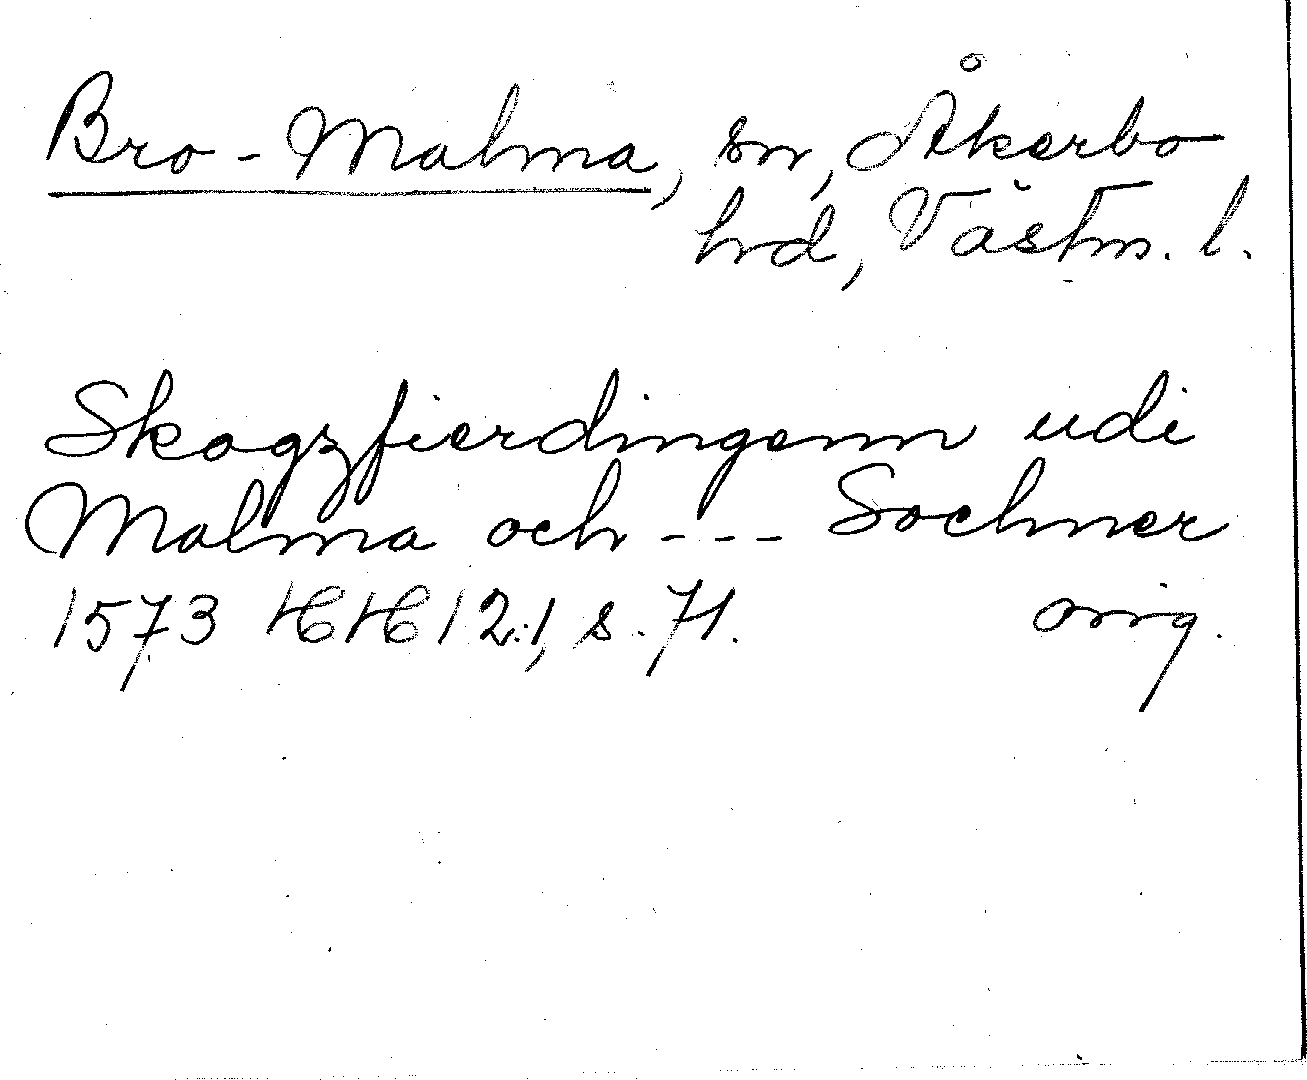 Bro-Malma, sn, Åkerbo
hrd, Västm. l.
Skogzfierdingenn udi
Malma och --- Sochner
1573 HH 12:1, s. 71. orig.